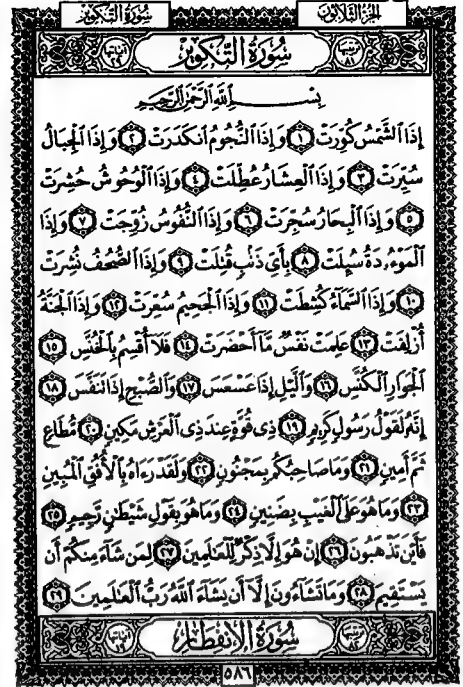 الجزء الثلاثون سورة التكوير
ترتيبها ٨١ سُورَةُ التَّكْوِيرِ آياتها ٢٩
بِسْمِ اللَّهِ الرَّحْمَٰنِ الرَّحِيمِ
إِذَا ٱلشَّمْسُ كُوِّرَتْ ١ وَإِذَا ٱلنُّجُومُ ٱنكَدَرَتْ ٢ وَإِذَا ٱلْجِبَالُ
سُيِّرَتْ ٣ وَإِذَا ٱلْعِشَارُ عُطِّلَتْ ٤ وَإِذَا ٱلْوُحُوشُ حُشِرَتْ
٥ وَإِذَا ٱلْبِحَارُ سُجِّرَتْ ٦ وَإِذَا ٱلنُّفُوسُ زُوِّجَتْ ٧ وَإِذَا
ٱلْمَوْءُۥدَةُ سُئِلَتْ ٨ بِأَىِّ ذَنۢبٍ قُتِلَتْ ٩ وَإِذَا ٱلصُّحُفُ نُشِرَتْ
١٠ وَإِذَا ٱلسَّمَآءُ كُشِطَتْ ١١ وَإِذَا ٱلْجَحِيمُ سُعِّرَتْ ١٢ وَإِذَا ٱلْجَنَّةُ
أُزْلِفَتْ ١٣ عَلِمَتْ نَفْسٌ مَّآ أَحْضَرَتْ ١٤ فَلَآ أُقْسِمُ بِٱلْخُنَّسِ ١٥
ٱلْجَوَارِ ٱلْكُنَّسِ ١٦ وَٱلَّيْلِ إِذَا عَسْعَسَ ١٧ وَٱلصُّبْحِ إِذَا تَنَفَّسَ ١٨
إِنَّهُۥ لَقَوْلُ رَسُولٍ كَرِيمٍ ١٩ ذِى قُوَّةٍ عِندَ ذِى ٱلْعَرْشِ مَكِينٍ ٢٠ مُّطَاعٍ
ثَمَّ أَمِينٍ ٢١ وَمَا صَاحِبُكُم بِمَجْنُونٍ ٢٢ وَلَقَدْ رَءَاهُ بِٱلْأُفُقِ ٱلْمُبِينِ
٢٣ وَمَا هُوَ عَلَى ٱلْغَيْبِ بِضَنِينٍ ٢٤ وَمَا هُوَ بِقَوْلِ شَيْطَٰنٍ رَّجِيمٍ ٢٥
فَأَيْنَ تَذْهَبُونَ ٢٦ إِنْ هُوَ إِلَّا ذِكْرٌ لِّلْعَٰلَمِينَ ٢٧ لِمَن شَآءَ مِنكُمْ أَن
يَسْتَقِيمَ ٢٨ وَمَا تَشَآءُونَ إِلَّآ أَن يَشَآءَ ٱللَّهُ رَبُّ ٱلْعَٰلَمِينَ ٢٩
ترتيبها ٨٢ سُورَةُ الإِنفِطَارِ آياتها ١٩
٥٨٦